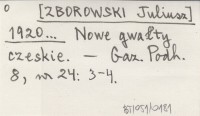 o [ZBOROWSKI Juliusz]
1920... Nowe gwałty
czeskie. — Gaz. Podh.
8, nr 24: 3-4.